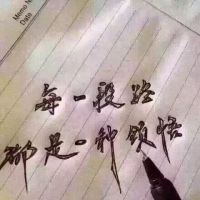 Memo No.
Date
每一段路
都是一种领悟